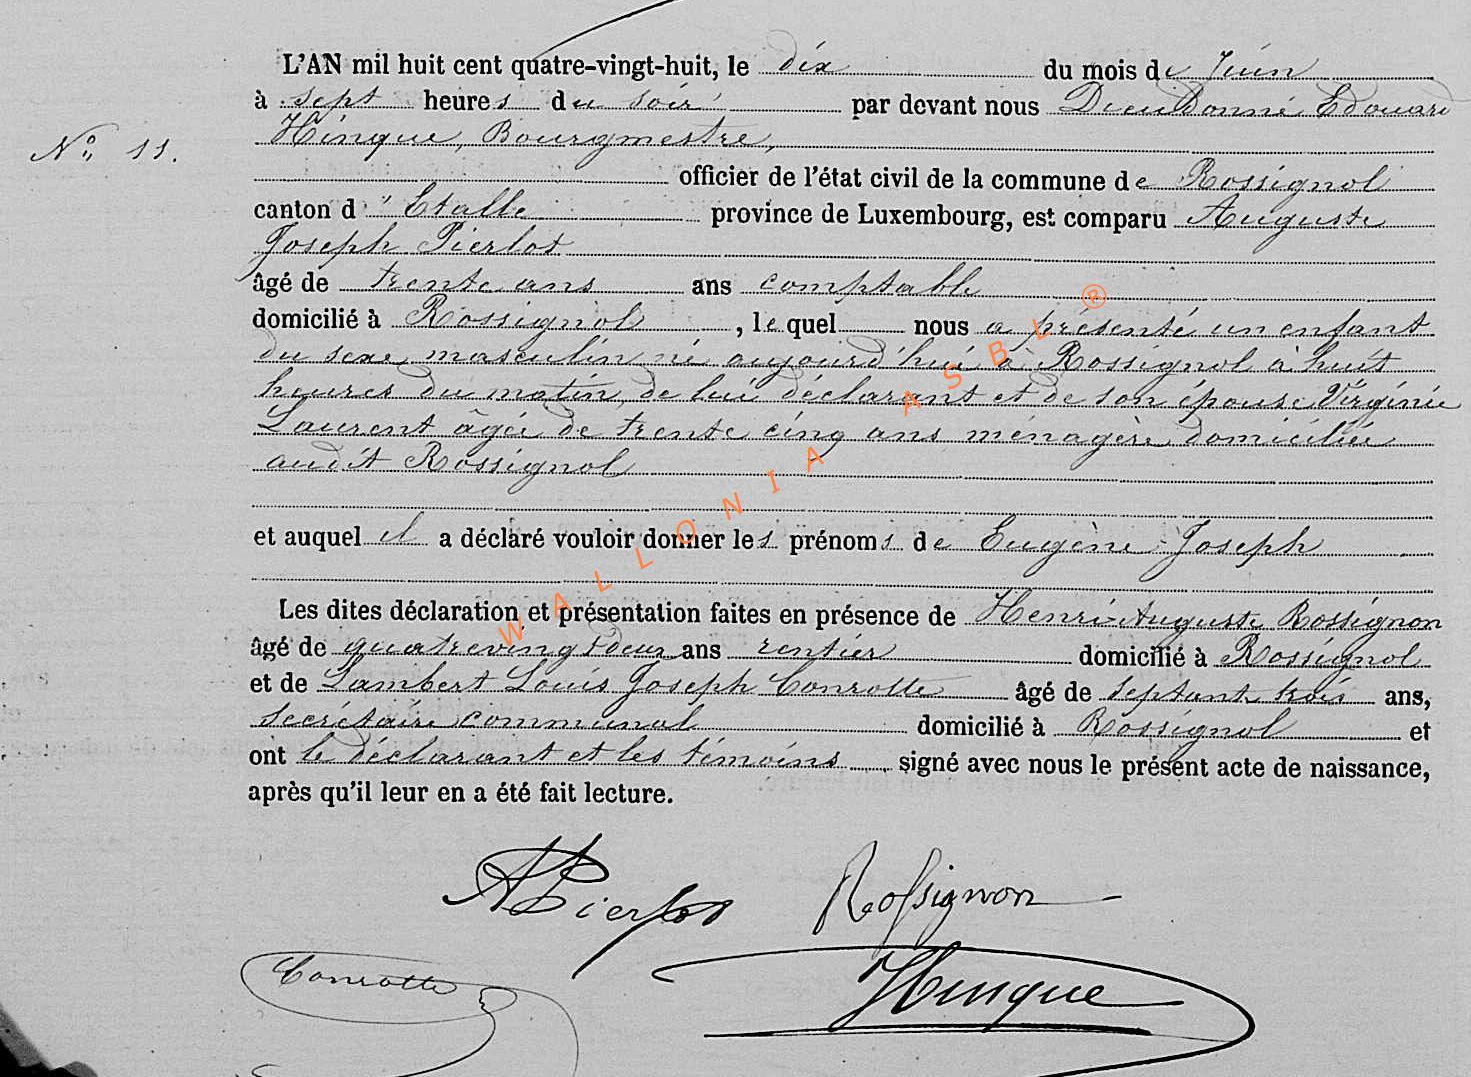 L'AN mil huit cent quatre-vingt-huit, le dix du mois de Juin
à sept heures du soir par devant nous Dieudonné Edouard
Hinque, Bourgmestre,
N° 11.
officier de l'état civil de la commune de Rossignol
canton d'Etalle province de Luxembourg, est comparu Auguste
Joseph Pierlot
âgé de trente ans ans comptable
domicilié à Rossignol, le quel nous a présenté un enfant
du sexe masculin né aujourd'hui à Rossignol à huit
heures du matin, de lui déclarant et de son épouse Virginie
Laurent âgée de trente cinq ans ménagère domiciliée
audit Rossignol
et auquel il a déclaré vouloir donner les prénoms de Eugène Joseph
Les dites déclaration et présentation faites en présence de Henri-Auguste Rossignon
âgé de quatrevingt deux ans rentier domicilié à Rossignol
et de Lambert Louis Joseph Conrotte âgé de septante trois ans,
secrétaire communal domicilié à Rossignol et
ont le déclarant et les témoins signé avec nous le présent acte de naissance,
après qu'il leur en a été fait lecture.
APierlot Rossignon
Conrotte Hinque
WALLONIA ASBL ®